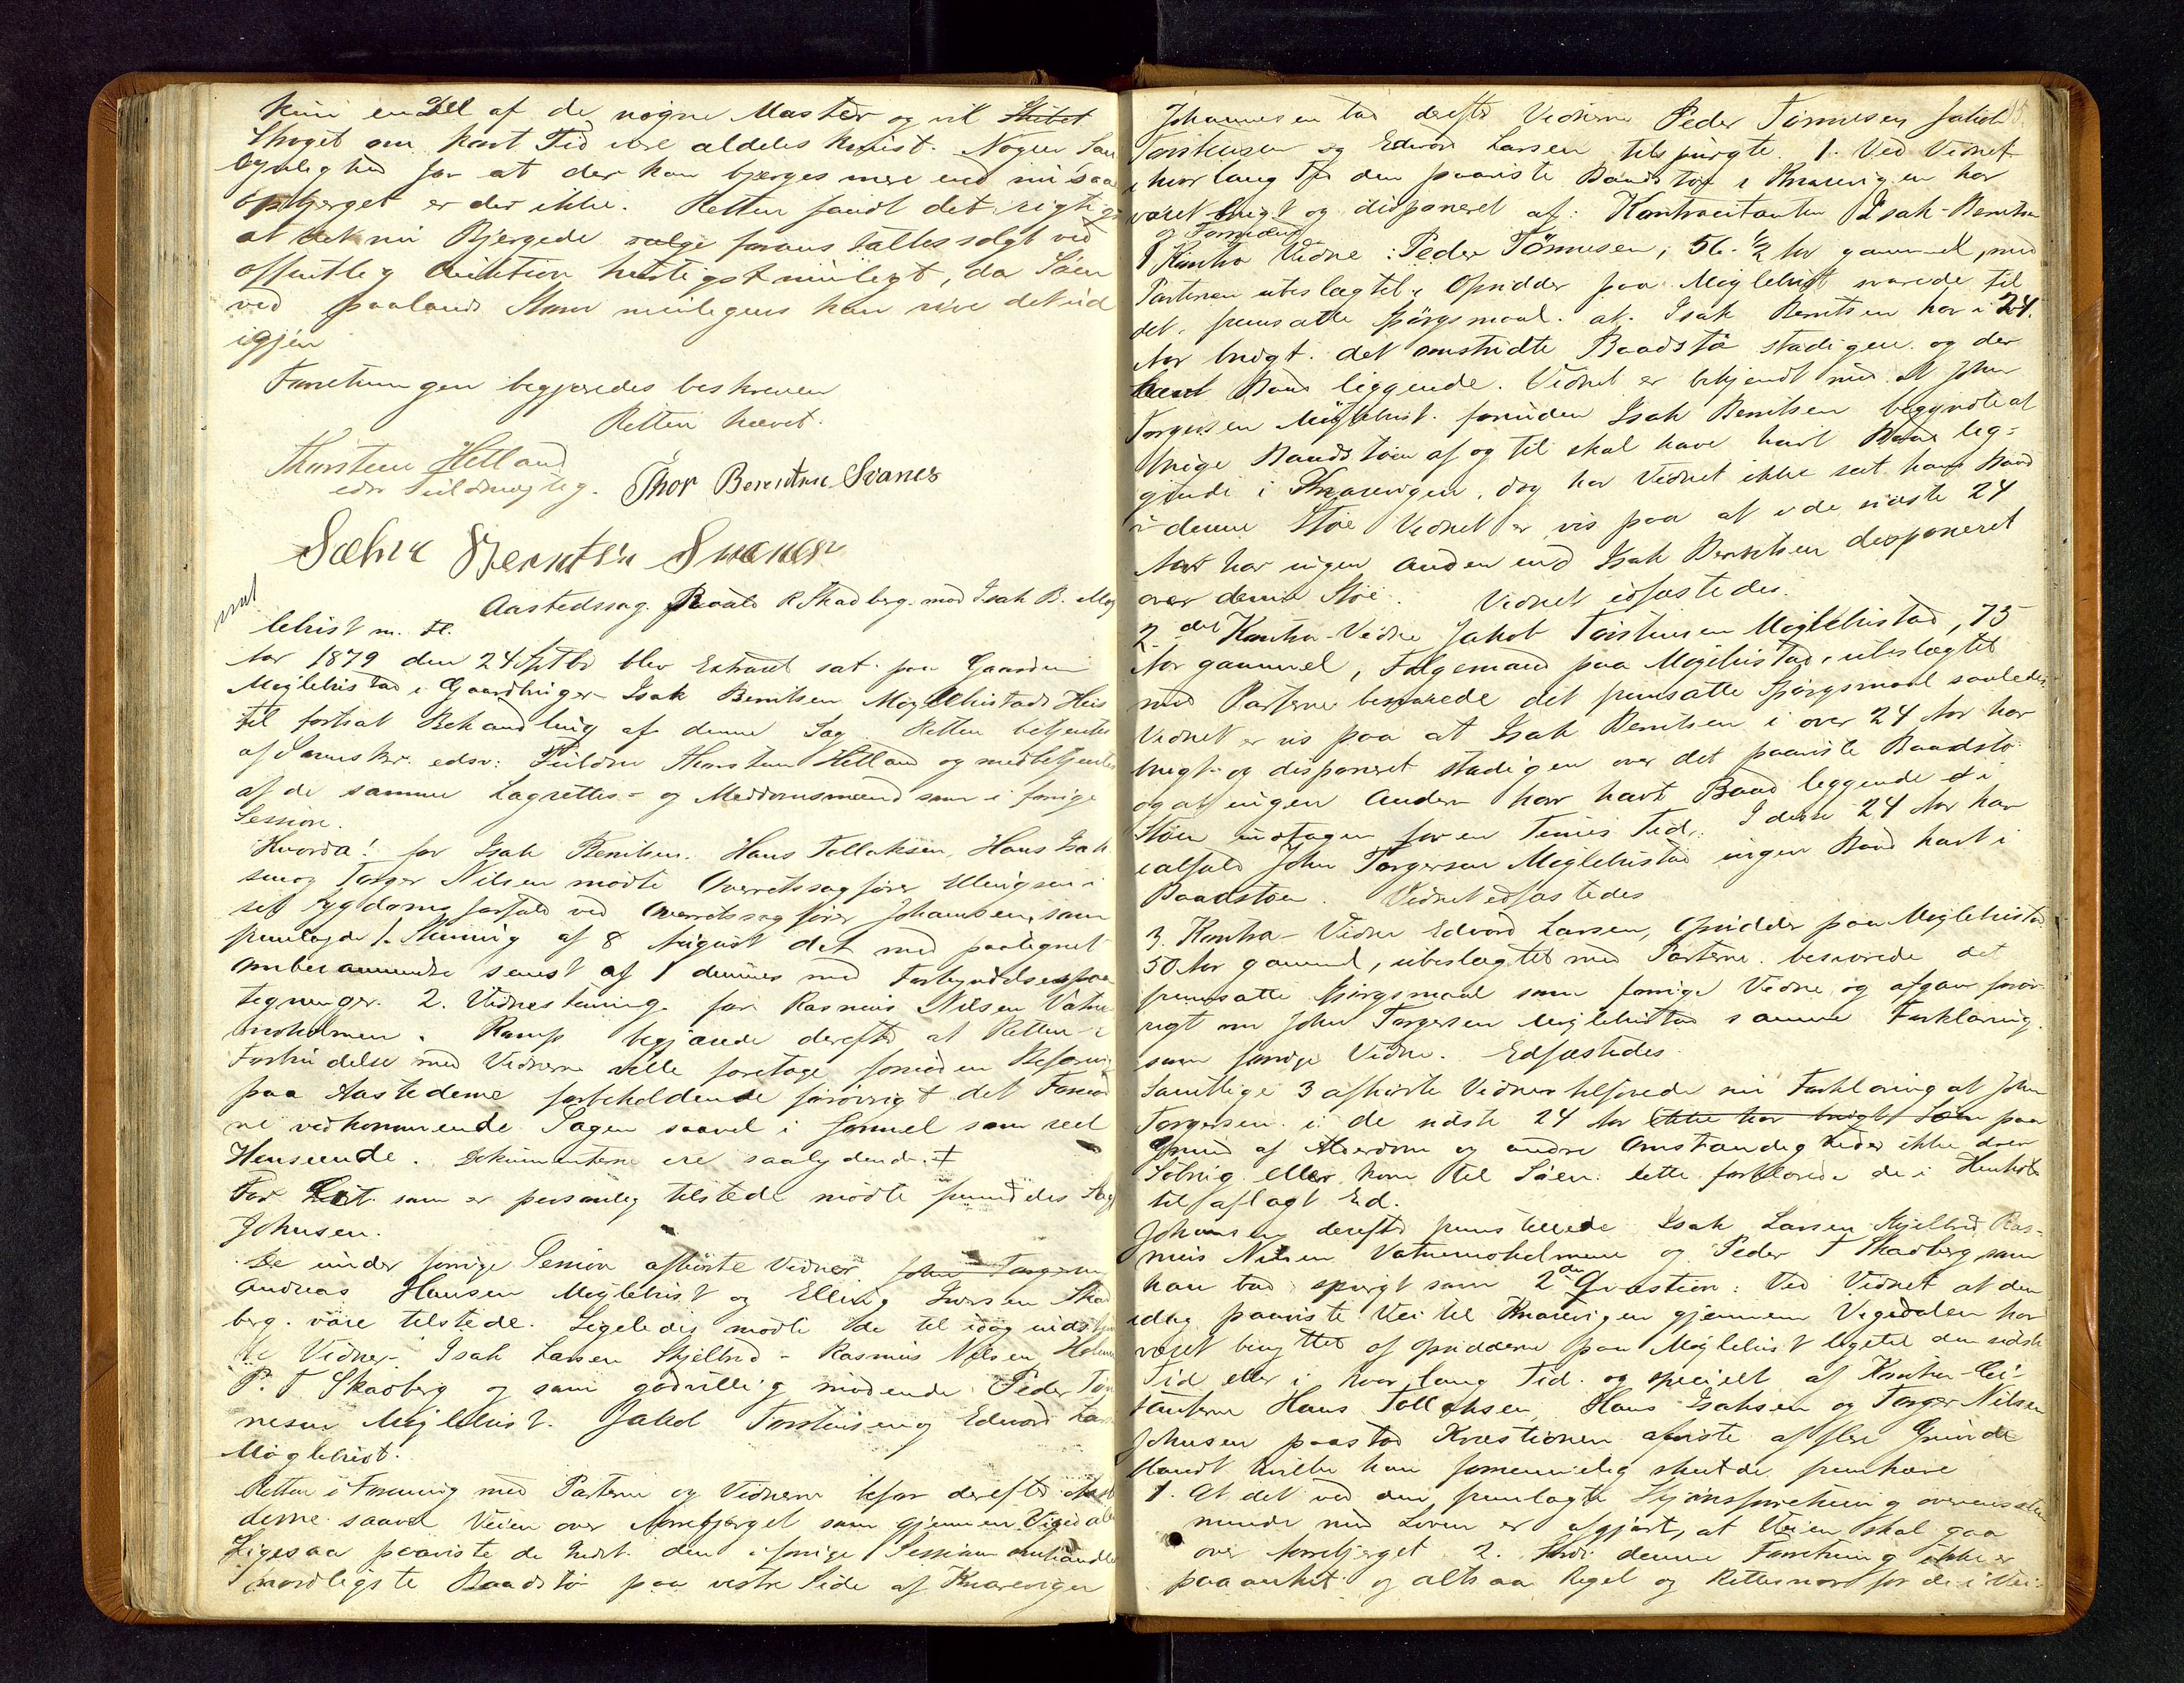 kun en Del af de nøgne Master og vil Skibet
Skroget om kort Tid være aldeles knust. Nogen San
synlighed for at der kan bjerges mere end nu saa
opbjerget er der ikke. Retten fandt det rigtig
at det nu Bjergede foranstaltes solgt ved
offentlig Auktion hurtigst muligt, da Søen
ved paalands Storm muligens kan rive det ud
igjen
Forretningen begjæredes beskreven
Retten hævet.
Thorsten Hetland
edsv Fuldmægtig. Thor Berentsen Svanes
Sælve Berntsen Svanes
Aastedssag. R Skadberg mod Isak B. Møg
lebust m. fl.
Aar 1879 den 24 Septbr blev Extraret sat paa Gaarden
Møglebustad i Gaardbruger Isak Berntsen Møglebustads Hus
til fortsat Behandling af denne Sag. Retten betjentes
af Sorenskr. edsv: Fuldm Thorsten Hetland og medbetjentes
af de samme Lagrettes- og Meddomsmænd som i forrige
Session.
Hvorda! for Isak Berntsen. Hans Tollaksen, Hans Isak
sen og Torger Nilsen mødte Overretssagfører Ellingsen i
set Sygdoms forfald ved Overretssagfører Johansen, som
fremlagde 1. Stevning af 8 August d A med paategnet
omberammelse senest af 1 dennes med Forkyndelsespaa
tegninger. 2. Vidnestevning for Rasmus Nilsen Vatne
moholmen. Komp begjærede derefter at Retten i
Forbindelse med Vidnerne vilde foretage fornøden Befaring
paa Aastederne forbeholdende forøvrigt det Fornød
ne vedkommende Sagen saavel i formel som reel
Henseende. Dokumenterne ere saalydende. ‡
For Cit. som er personlig tilstede mødte fremdeles Sagf
Johnsen.
De under forrige Session afhørte Vidner John Torgersen
Andreas Hansen Møglebust og Elling Iversen Skad
berg. vare tilstede. Ligeledes mødte de til idag indst
te Vidner Isak Larsen Skjelbred - Rasmus Nilsen Holmen
P. T Skadberg og som godvillig mødende Peder Tøn
nesen Møglebust. Jakob Torstensen og Edvard Lars
Møglebust.
Retten i Forening med Parterne og Vidnerne befor derefter Aast
derne saavel Veien over Aarrebjerget som gjennem Vigedale
Ligesaa paaviste de Indst. den i forrige Session omhandle
nordligste Baadstø paa vestre Side af Knarevigen
Johannesen lod derefter Vidnerne Peder Tønnesen Jakob
Torstensen og Edvard Larsen tilspørgte. 1. Ved Vidnet
i hvor lang Tid den paaviste Baadstø i Knarevigen har
været brugt og disponeret af: Kontracitanten Isak Berntsen
og Formænd
1 Kontra Vidne: Peder Tønnesen, 56 ½ Aar gammel, med
Parterne ubeslægtet, Opsidder paa Møglebust svarede til
det fremsatte Spørgsmaal. at Isak Berntsen har i 24.
Aar brugt det omstridte Baadstø stadigen og der
havt Baad liggende. Vidnet er bekjendt med at John
Torgersen Møglebust. forinden Isak Berntsen begyndte at
bruge Baadstøen af og til skal have havt Baad lig-
gende i Knarevigen, dog har Vidnet ikke set hans Baad
i denne Støe Vidnet er vis paa at i de sidste 24
Aar har ingen anden end Isak Berntsen disponeret
over denne Støe. Vidnet edfæstedes.
2 det Kontra-Vidne Jakob Torstensen Møglebustad, 75
Aar gammel, Følgemand paa Møglebustad, ubeslægtet
med Parterne besvarede det fremsatte Spørgsmaal saaledes
Vidnet er vis paa at Isak Berntsen i over 24 Aar har
brugt og disponeret stadigen over det paaviste Baadstø
og at ingen Anden har havt Baad liggende i
Støen undtagen for en Times Tid. I disse 24 Aar har
ialfald John Torgersen Møglebustad ingen Baad havt i
Baadstøen. Vidnet edfæstedes
3. Kontra-Vidne Edvard Larsen, Opsidder paa Møglebustad
50 Aar gammel, ubeslægtet med Parterne. besvarede det
fremsatte Spørgsmaal som forrige Vidne og afgav forøv-
rigt om John Torgersen Møglebustad samme Forklaring
som forrige Vidne. Edfæstedes.
Samtlige 3 afhørte Vidner tilførede nu Forklaring at John
Torgersen i de sidste 24 Aar ikke har brugt Søen paa
Grund af Alderdom og andre Omstændigheder ikke drev
Søbrug eller kom til Søen. dette forklarede de i Henhold
til aflagt Ed.
Johansen derefter fremstillede Isak Larsen Skjelbred Ras-
mus Nilsen Vatnemoholmen og Peder T Skadberg som
han bad spurgt som 2den Qvæstion: Ved Vidnet at den
idag paaviste Vei til Knarevigen gjennem Vigedalen har
været benyttet af Opsidderne paa Møglebust ligetil den sidste
Tid eller i hvor lang Tid. og specielt af Kontra-Ci-
tanterne Hans Tollaksen, Hans Isaksen og Torger Nilsen
Johnsen paastod Kvæstionen afviste af flere Grunde
blandt hvilke han fornemmelig skulde fremhæve
1. At det ved den fremlagte Skjønsforretning overensstem
mende med Loven er afgjort, at Veien skal gaa
over Aarrebjerget. 2. Fordi denne Forretning ikke er
paaanket og altsaa Regel og Rettesnor for de i Vei-